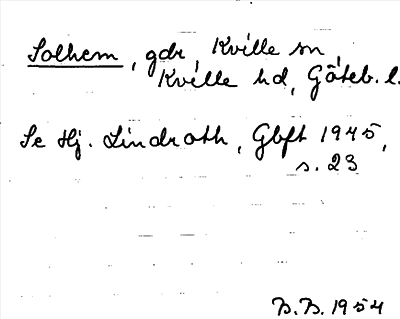 Solhem, gdr, Kville sn,
Kville hd, Göteb. l.
Se Hj. Lindroth, Gbft 1945,
s. 23
B.B. 1954